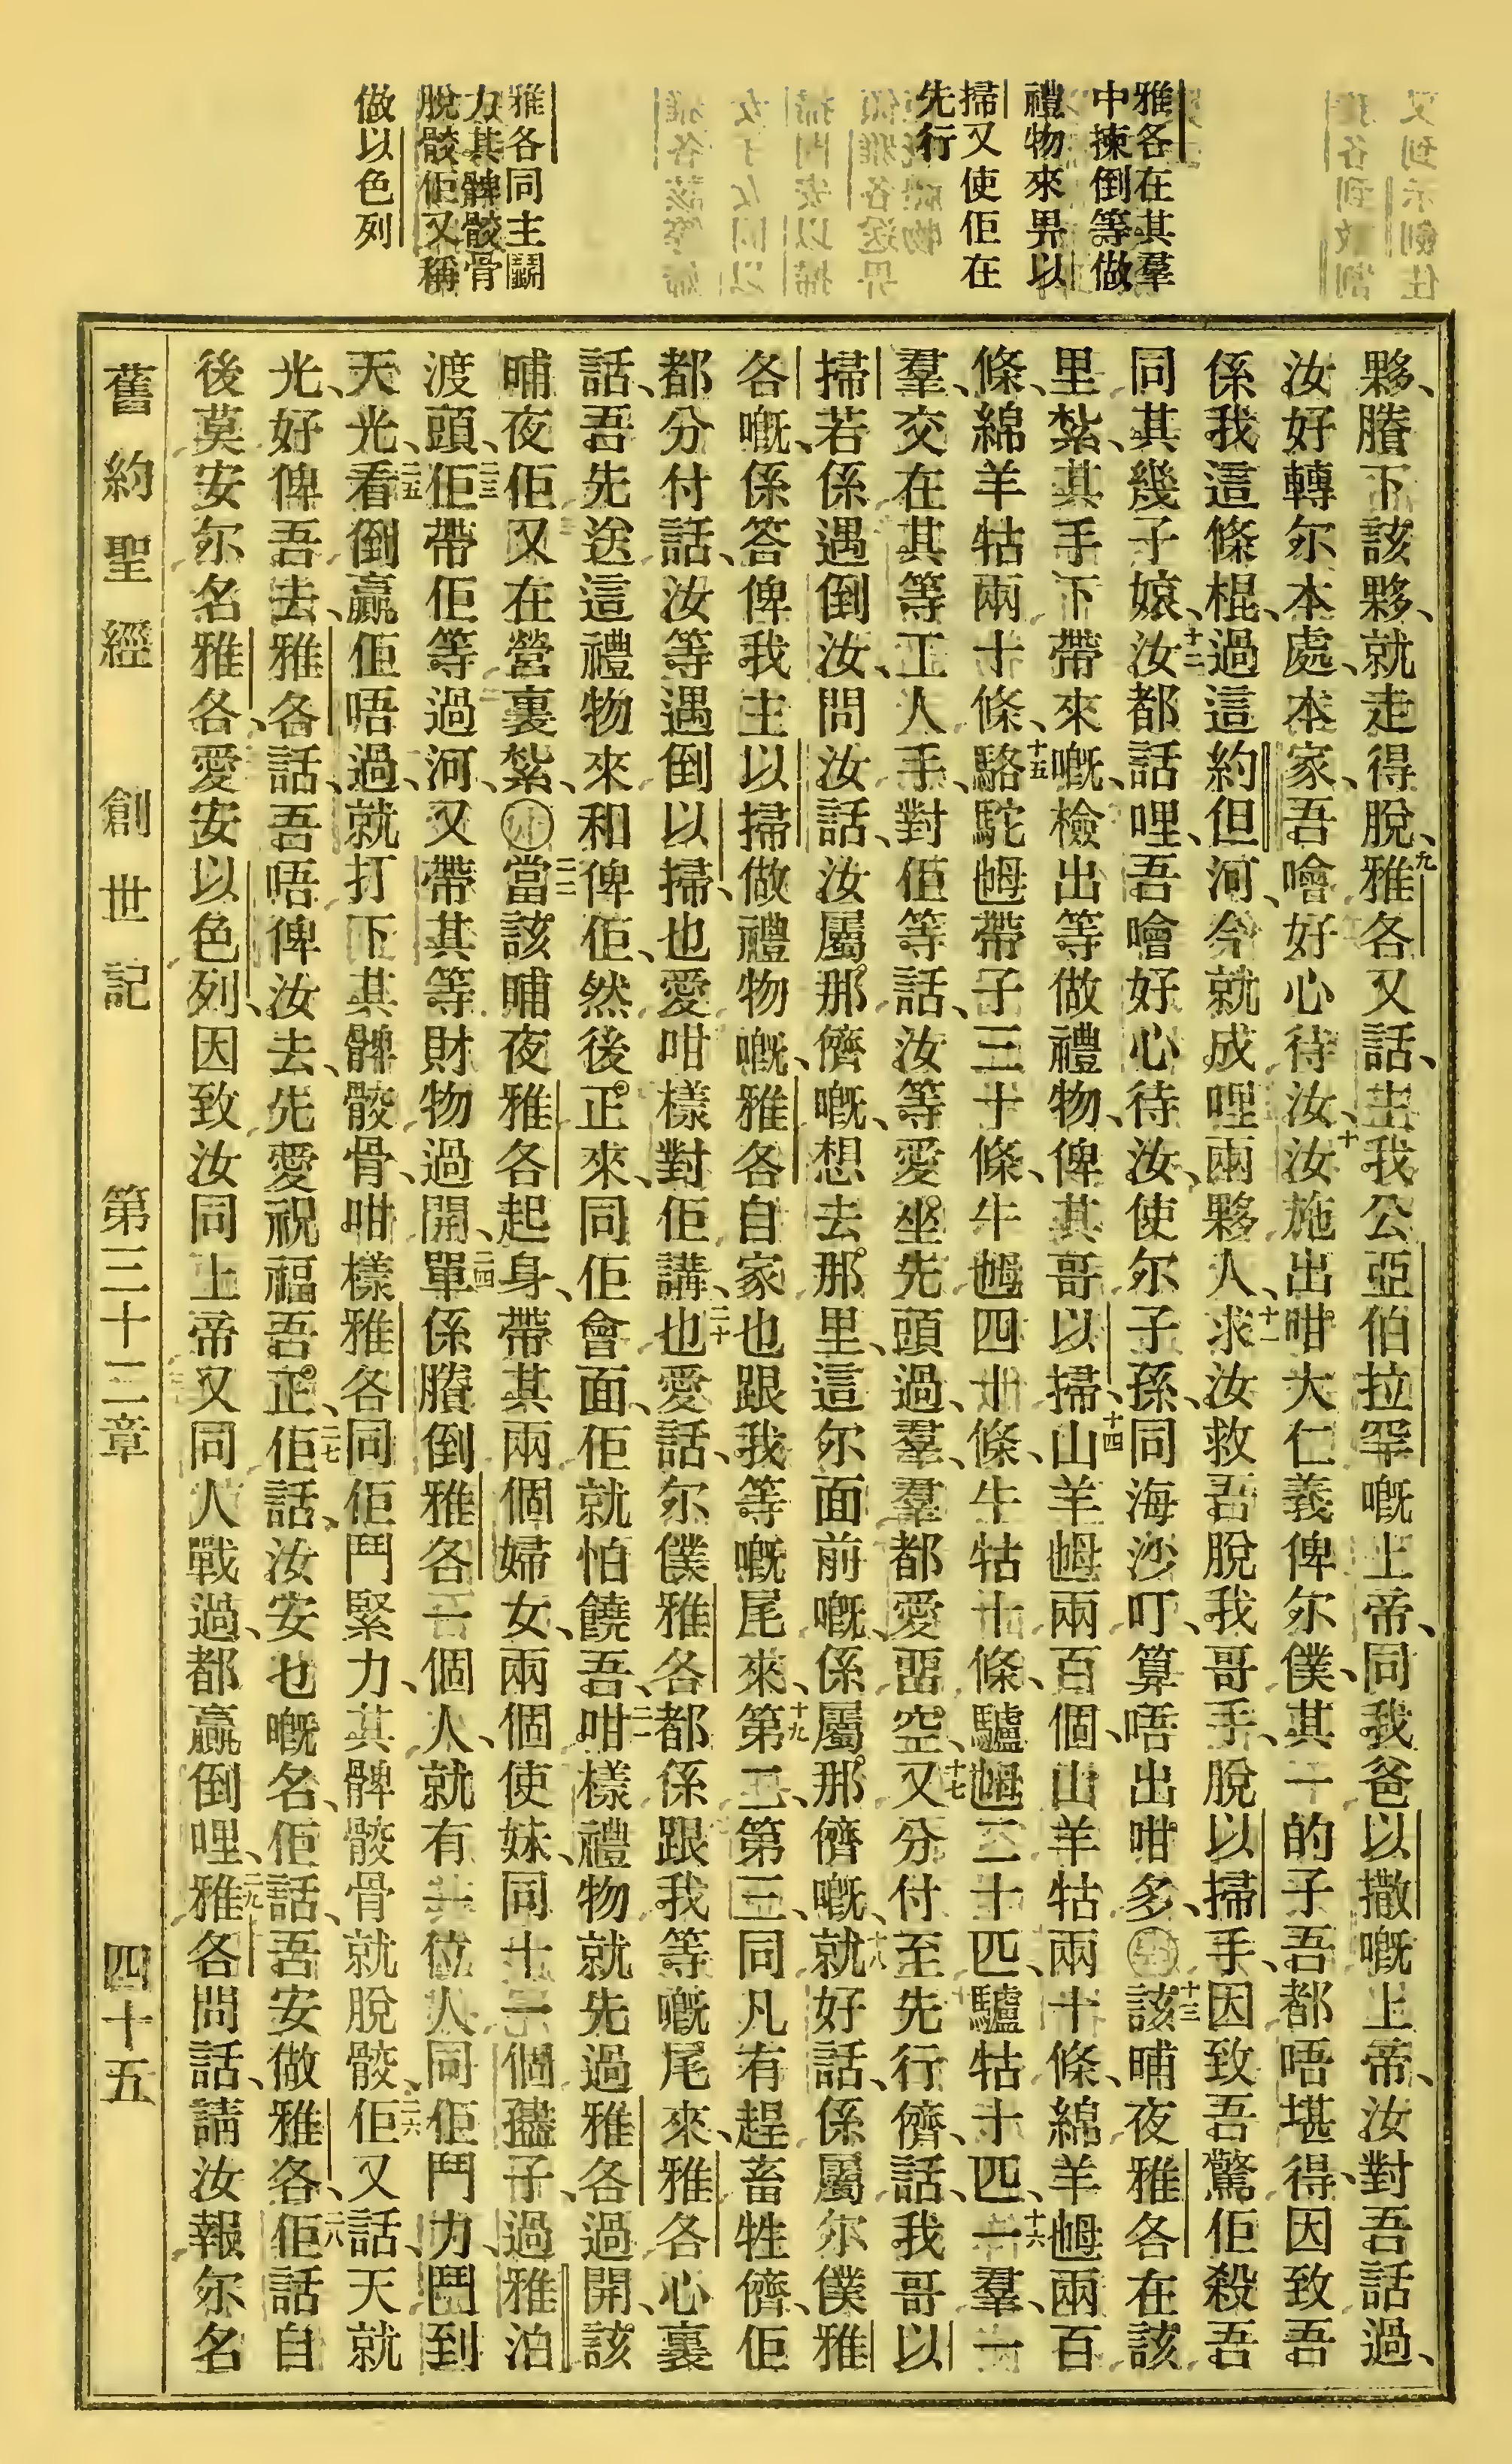 雅各在其羣
中揀倒等做
禮物來畀以
掃又使佢在
先行
雅各同主鬭
力其髀骹骨
脫骹佢又稱
做以色列
夥、賸下該夥、就走得脫、九雅各又話、主我公亞伯拉罕嘅上帝、同我爸以撒嘅上帝、汝對吾話過、
汝好轉尔本處、本家、吾噲好心待汝、十汝施出咁大仁義俾尔僕、其一的子吾都唔堪得、因致吾
係我這條棍、過這約但河、今就成哩兩夥人、十一求汝救吾脫我哥手、脫以掃手、因致吾驚佢殺吾
同其幾子娘、十二汝都話哩、吾噲好心待汝、使尔子孫、同海沙叮、算唔出咁多、十三該晡夜雅各在該
里紮、其手下帶來嘅、檢出等做禮物、俾其哥以掃、十四山羊𡜵兩百個、山羊牯兩十條、綿羊𡜵兩百
條、綿羊牯兩十條、十五駱駝𡜵帶子三十條、牛𡜵四十條、牛牯十條、驢𡜵二十匹、驢牯十匹、十六一羣、一
羣、交在其等工人手、對佢等話、汝等愛坐先頭過、羣羣都愛畱空、十七又分付至先行儕、話、我哥以
掃若係遇倒汝、問汝話、汝屬那儕嘅、想去那里、這尔面前嘅、係屬那儕嘅、十八就好話、係屬尔僕雅
各嘅、係答俾我主以掃做禮物嘅、雅各自家也跟我等嘅尾來、十九第二、第三、同凡有趕畜牲儕、佢
都分付話、汝等遇倒以掃、也愛咁樣對佢講、二十也愛話、尔僕雅各都係跟我等嘅尾來、雅各心裏
話、吾先送這禮物來和俾佢、然後正來、同佢會面、佢就怕饒吾、二一咁樣禮物就先過、雅各過開、該
晡夜佢又在營裏紮、二二當該晡夜雅各起身、帶其兩個婦女、兩個使妹、同十一個孻子、過雅泊
渡頭、二三佢帶佢等過河、又帶其等財物過開、二四單係賸倒雅各一個人、就有一位人同佢鬥力、鬭到
天光、二五看倒贏佢唔過、就打下其髀骹骨、咁樣雅各同佢鬥緊力、其髀骹骨就脫骹、二六佢又話、天就
光、好俾吾去、雅各話、吾唔俾汝去、先愛祝福吾正、二七佢話、汝安乜嘅名、佢話、吾安做雅各、二八佢話自
後莫安尔名雅各、愛安以色列、因致汝同上帝又同人戰過、都贏倒哩、二九雅各問話、請汝報尔名
舊約聖經 創世記 第三十二章 四十五